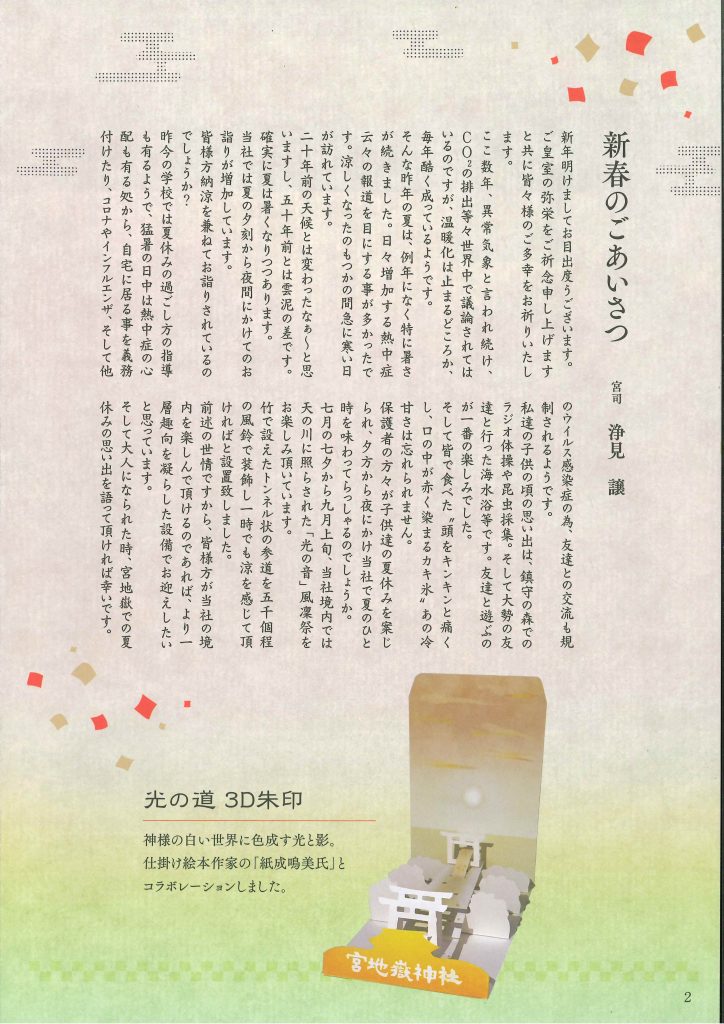 新春のごあいさつ
宮司　浄見　譲
新年明けましてお目出度うございます。
ご皇室の弥栄をご祈念申し上げます
と共に皆々様のご多幸をお祈りいたし
ます。
ここ数年、異常気象と言われ続け、
CO²の排出等々世界中で議論されては
いるのですが、温暖化は止まるどころか、
毎年酷く成っているようです。
そんな昨年の夏は、例年になく特に暑さ
が続きました。日々増加する熱中症
云々の報道を目にする事が多かったで
す。涼しくなったのもつかの間急に寒い日
が訪れています。
二十年前の天候とは変わったなぁ〜と思
いますし、五十年前とは雲泥の差です。
確実に夏は暑くなりつつあります。
当社では夏の夕刻から夜間にかけてのお
詣りが増加しています。
皆様方納涼を兼ねてお詣りされているの
でしょうか？
昨今の学校では夏休みの過ごし方の指導
も有るようで、猛暑の日中は熱中症の心
配も有る処から、自宅に居る事を義務
付けたり、コロナやインフルエンザ、そして他
のウイルス感染症の為、友達との交流も規
制されるようです。
私達の子供の頃の思い出は、鎮守の森での
ラジオ体操や昆虫採集。そして大勢の友
達と行った海水浴等です。友達と遊ぶの
が一番の楽しみでした。
そして皆で食べた〝頭をキンキンと痛く
し、口の中が赤く染まるカキ氷〟あの冷
甘さは忘れられません。
保護者の方々が子供達の夏休みを案じ
られ、夕方から夜にかけ当社で夏のひと
時を味わってらっしゃるのでしょうか。
七月の七夕から九月上旬、当社境内では
天の川に照らされた「光の音」風凛祭を
お楽しみ頂いています。
竹で設えたトンネル状の参道を五千個程
の風鈴で装飾し一時でも涼を感じて頂
ければと設置致しました。
前述の世情ですから、皆様方が当社の境
内を楽しんで頂けるのであれば、より一
層趣向を凝らした設備でお迎えしたい
と思っています。
そして大人になられた時、宮地嶽での夏
休みの思い出を語って頂ければ幸いです。
光の道 3D朱印
神様の白い世界に色成す光と影。
仕掛け絵本作家の「紙成鳴美氏」と
コラボレーションしました。
宮地嶽神社
2